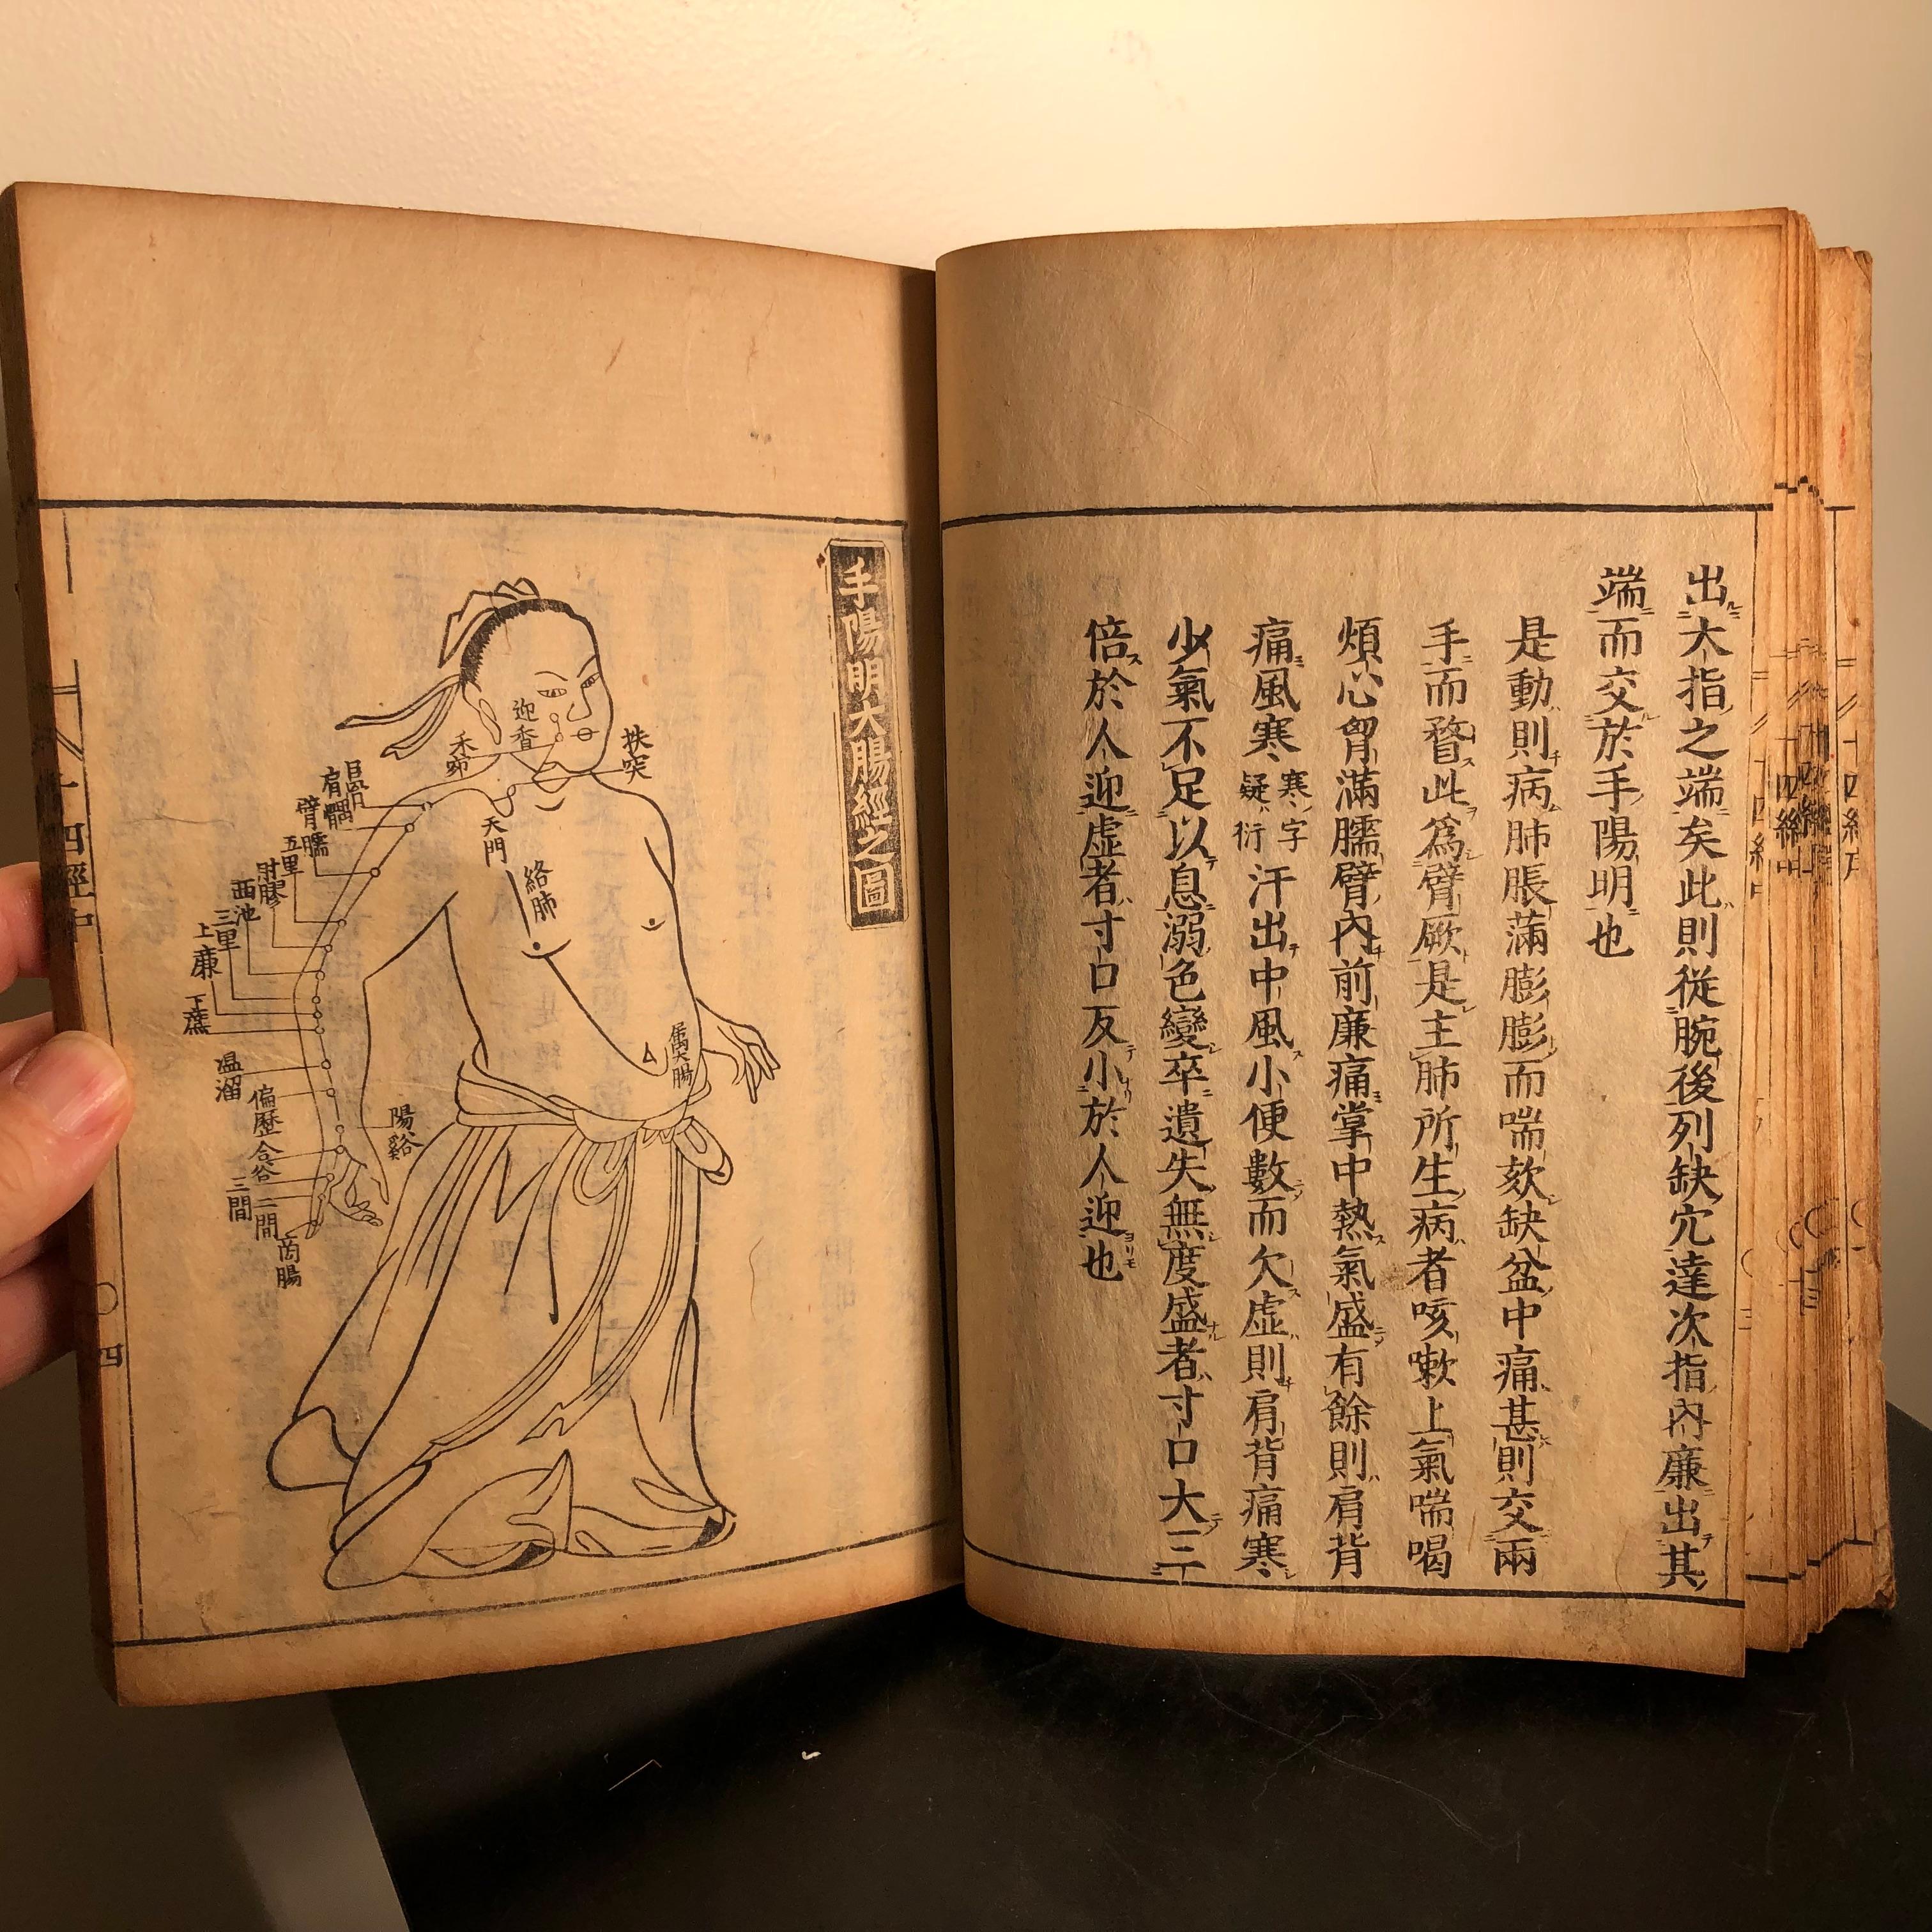 出大指之端矣此則従腕後列缺穴達次指內廉出其
端而交於手陽明也
是動則病肺脹滿膨膨而喘欬缺盆中痛甚則交兩
手而瞀此爲臂厥是主肺所生病者咳嗽上氣喘喝
煩心胷滿臑臂內前廉痛掌中熱氣盛有餘則肩背
痛風寒寒字疑衍汗出中風小便數而欠虛則肩背痛寒
少氣不足以息溺色變卒遺失無度盛者寸口大三
倍於人迎虛者寸口反小於人迎也
手陽明大腸經之圖
扶突
迎香
禾窌
巨骨
肩髃
臂臑
五里
肘髎
西池
三里
上廉
下廉
温溜
偏歷
陽谿
合谷
三間
二間
啇腸
天門
絡肺
屬大腸
十四經中
四